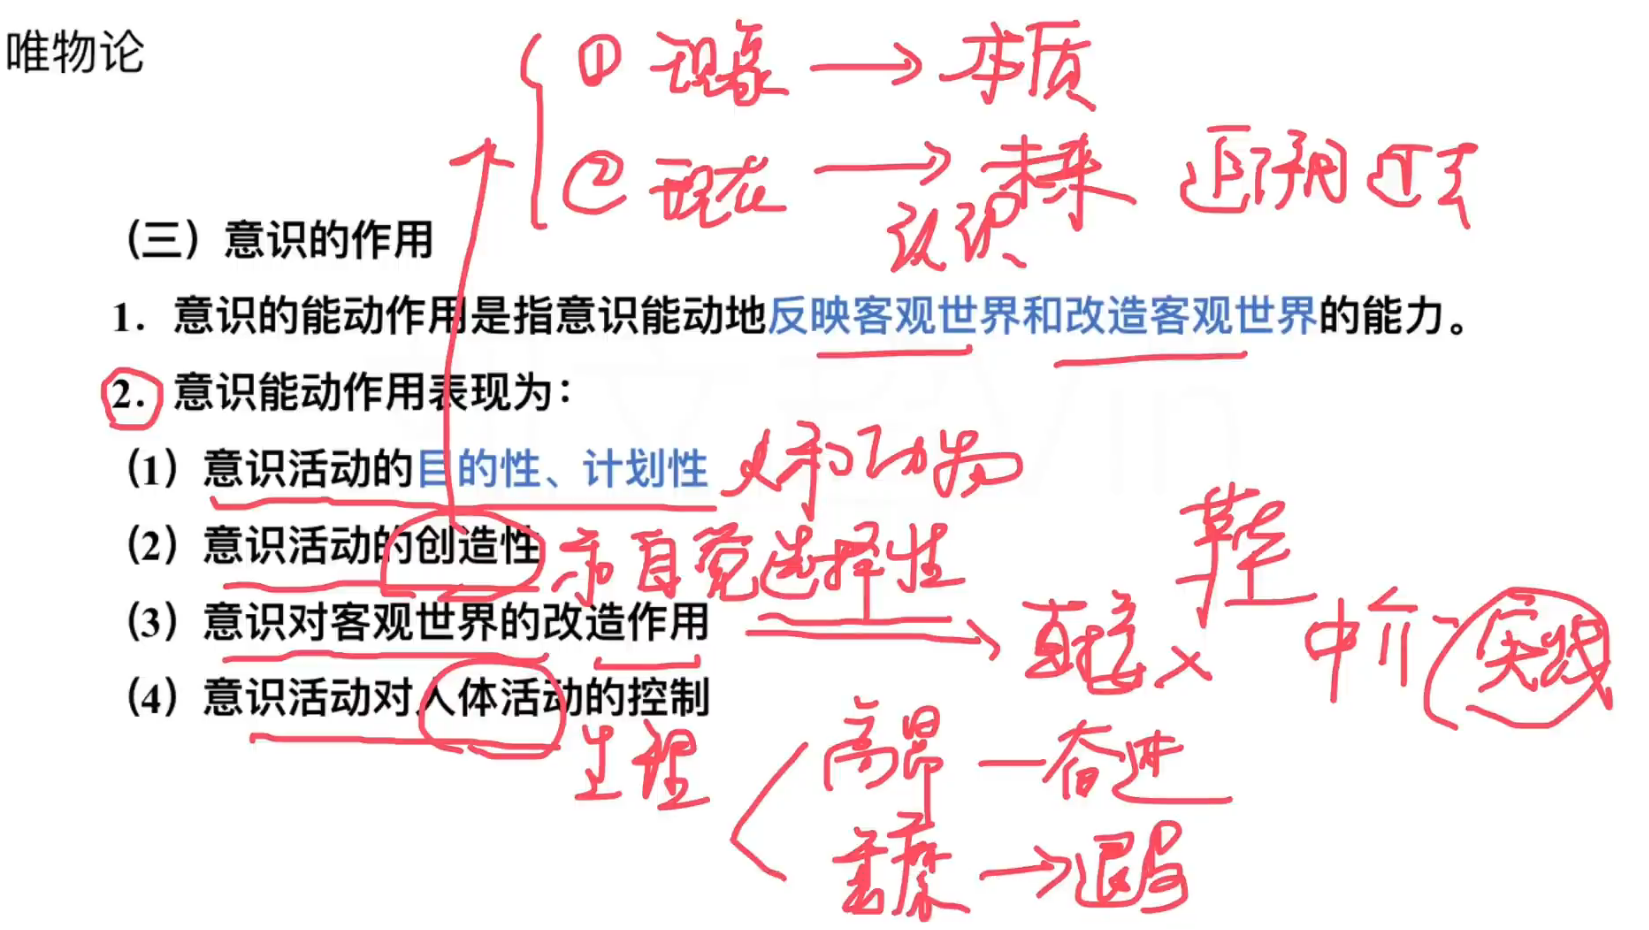 唯物论
① 现象 → 本质
② 现在 → 未来 追溯过去
认识
（三）意识的作用
1. 意识的能动作用是指意识能动地反映客观世界和改造客观世界的能力。
2. 意识能动作用表现为：
（1）意识活动的目的性、计划性 人和动物
（2）意识活动的创造性 自觉选择性
（3）意识对客观世界的改造作用 → 直接× 中介 实践
（4）意识活动对人体活动的控制
生理
高昂 — 奋进
萎靡 → 退步